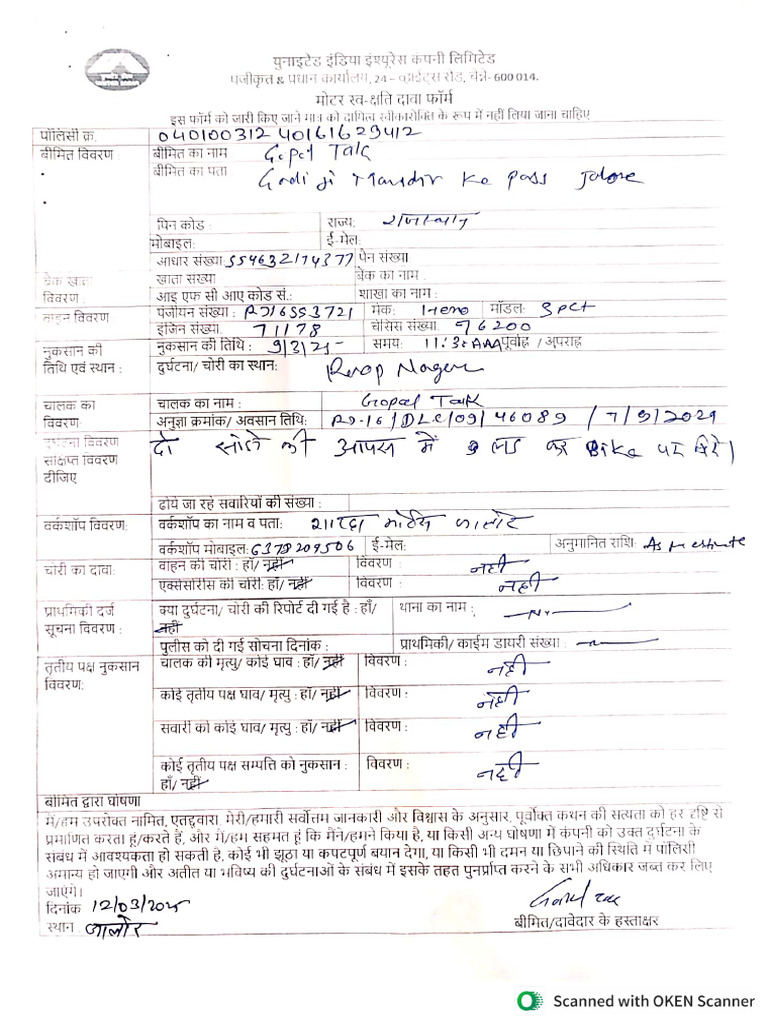 युनाइटेड इंडिया इंश्यूरेंस कंपनी लिमिटेड
पंजीकृत & प्रधान कार्यालय, 24 – व्हाईट्स रोड, चेन्ने- 600 014.
मोटर स्व-क्षति दावा फॉर्म
इस फॉर्म को जारी किए जाने मात्र को दायित्व स्वीकारोक्ति के रूप में नही लिया जाना चाहिए
पॉलिसी क्र. 04010031240161629412
बीमित विवरण : बीमित का नाम Gopal Talk
बीमित का पता Godi Ji Mandir ke pass Jalore
पिन कोड : राज्य: राजस्थान
मोबाइल: ई-मेल:
आधार संख्या: 554632174377 पैन संख्या
बैंक खाता खाता संख्या बेंक का नाम :
विवरण : आइ एफ सी आए कोड सं.: शाखा का नाम :
वाहन विवरण पंजीयन संख्या : RJ16SS3721 मेक: Hero मॉडल:
इंजिन संख्या. 71178 चेसिस संख्या. 76200
नुकसान की नुकसान की तिथि : 9/3/25 समय: 11:30 AM पूर्वाह्न / अपराह्न
तिथि एवं स्थान : दुर्घटना/ चोरी का स्थान: Roop Nagar
चालक का चालक का नाम : Gopal Talk
विवरण: अनुज्ञा क्रमांक/ अवसान तिथि: RJ-16/DLC/09/46089 /7/9/2029
दुर्घटना विवरण दो की आपस में लड कर Bike पर गिरे।
संक्षिप्त विवरण
दीजिए
ढोये जा रहे सवारियों की संख्या :
वर्कशॉप विवरण: वर्कशॉप का नाम व पता: शारदा जालोर
वर्कशॉप मोबाइल: 6378209506 ई-मेल: अनुमानित राशि: As estimate
चोरी का दावा: वाहन की चोरी : हॉ/ नहीं विवरण : नही
एक्सेसोरीस की चोरी: हॉ/ नहीं विवरण : नही
प्राथमिकी दर्ज क्या दुर्घटना/ चोरी की रिपोर्ट दी गई है : हॉं/ थाना का नाम :
सूचना विवरण : नहीं
पुलीस को दी गई सोचना दिनांक : प्राथमिकी/ काईम डायरी संख्या :
तृतीय पक्ष नुकसान चालक की मृत्यु/ कोई घाव : हॉ/ नहीं विवरण : नही
विवरण:
कोई तृतीय पक्ष घाव/ मृत्यु : हॉ/ नहीं विवरण : नही
सवारी को कोई घाव/ मृत्यु : हॉ/ नहीं विवरण : नही
कोई तृतीय पक्ष सम्पत्ति को नुकसान : विवरण : नही
हॉं/ नहीं
बीमित द्वारा घोषणा
मैं/हम उपरोक्त नामित, एतद्द्वारा. मेरी/हमारी सर्वोत्तम जानकारी और विश्वास के अनुसार, पूर्वोक्त कथन की सत्यता को हर दृष्टि से
प्रमाणित करता हूं/करते हैं, और मैं/हम सहमत हूं कि मैंने/हमने किया है, या किसी अन्य घोषणा में कंपनी को उक्त दुर्घटना के
संबंध में आवश्यकता हो सकती है, कोई भी झूठा या कपटपूर्ण बयान देगा, या किसी भी दमन या छिपाने की स्थिति में पॉलिसी
अमान्य हो जाएगी और अतीत या भविष्य की दुर्घटनाओं के संबंध में इसके तहत पुनर्प्राप्त करने के सभी अधिकार जब्त कर लिए
जाएंगे।
दिनांक 12/03/2025
स्थान : जालोर बीमित/दावेदार के हस्ताक्षर
Scanned with OKEN Scanner